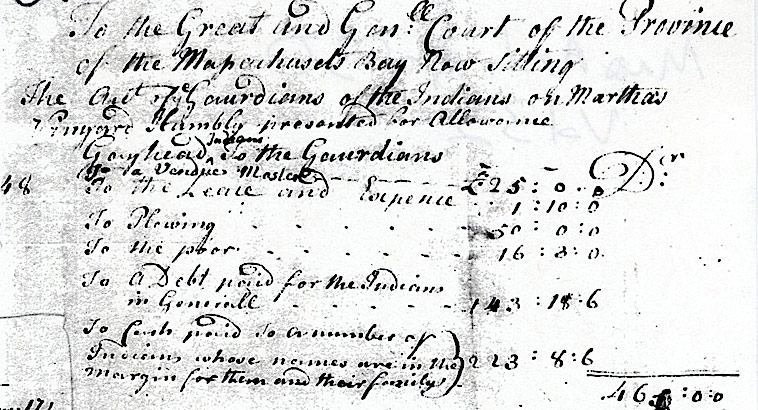 To the Great and Gen.ll Court of the Province
of the Massachusets Bay Now Sitting
The Acct of ye Gaurdians of the Indians on Marthas
Vinyard Humbly presented for Allowance
Gayhead Indians To the Gaurdians Dr
48 To a Vendue Master £25:0:0
To the Lease and Expence 1:10:0
To Plowing 50:0:0
To the poor 16:3:0
To a Debt paid for the Indians
in Generall 143:18:6
To Cash paid to a number of
Indians whose names are in the 223:8:6
margin for them and their familys
:0:0